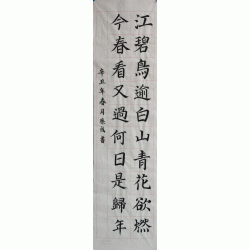 江碧鳥逾白山青花欲燃
今春看又過何日是歸年
辛丑年春月
書